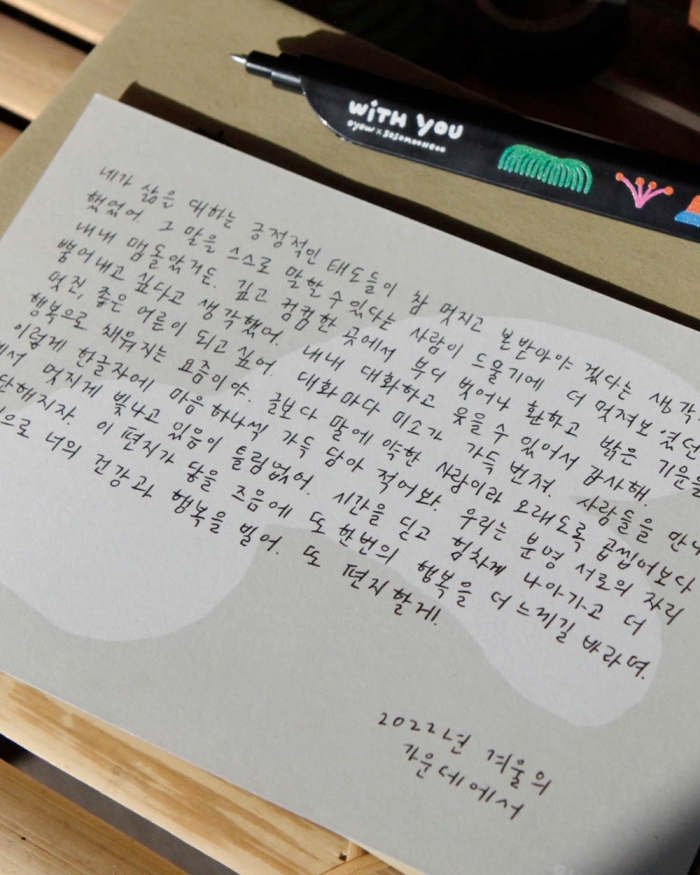 WiTH YOU
oyow x sosomoonooo
네가 삶을 대하는 긍정적인 태도들이 참 멋지고 본받아야 겠다는 생각
했었어. 그 말을 스스로 말할 수 있다는 사람이 드물기에 더 멋져보였던
내내 맴돌았거든. 깊고 컴컴한 곳에서 부디 벗어나 환하고 밝은 기운을
뿜어내고 싶다고 생각했어. 내내 대화하고 웃을 수 있어서 감사해.
멋진, 좋은 어른이 되고 싶어. 대화마다 미소가 가득 번져. 사람들을 만나
행복으로 채워지는 요즘이야. 글보다 말에 약한 사람이라 오래도록 곱씹어보다
이렇게 한글자에 마음 하나씩 가득 담아 적어봐. 우리는 분명 서로의 자리
에서 멋지게 빛나고 있음이 틀림없어. 시간을 딛고 힘차게 나아가고 더
단해지자. 이 편지가 닿을 즈음에 또 한번의 행복을 더 느끼길 바라며.
으로 너의 건강과 행복을 빌어. 또 편지 할게!
2022년 겨울의
가운데에서